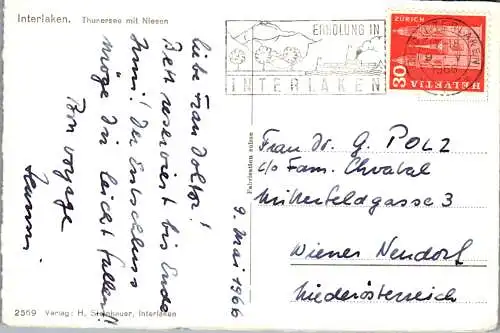 Interlaken. Thunersee mit Niesen
ERHOLUNG IN
INTERLAKEN
ZÜRICH
INTERLAKEN
1966
30
HELVETIA
Liebe Frau Doktor!
Bett reserviert bis Ende
Juni! Der Entschluss
möge Dir leicht fallen!!
Bon voyage
9. Mai 1966
Fabrication suisse
Frau Dr. G. POLZ
c/o Fam. Chvatal
Mitterfeldgasse 3
Wiener Neudorf
Niederösterreich
2569 Verlag: H. Steinhauer, Interlaken